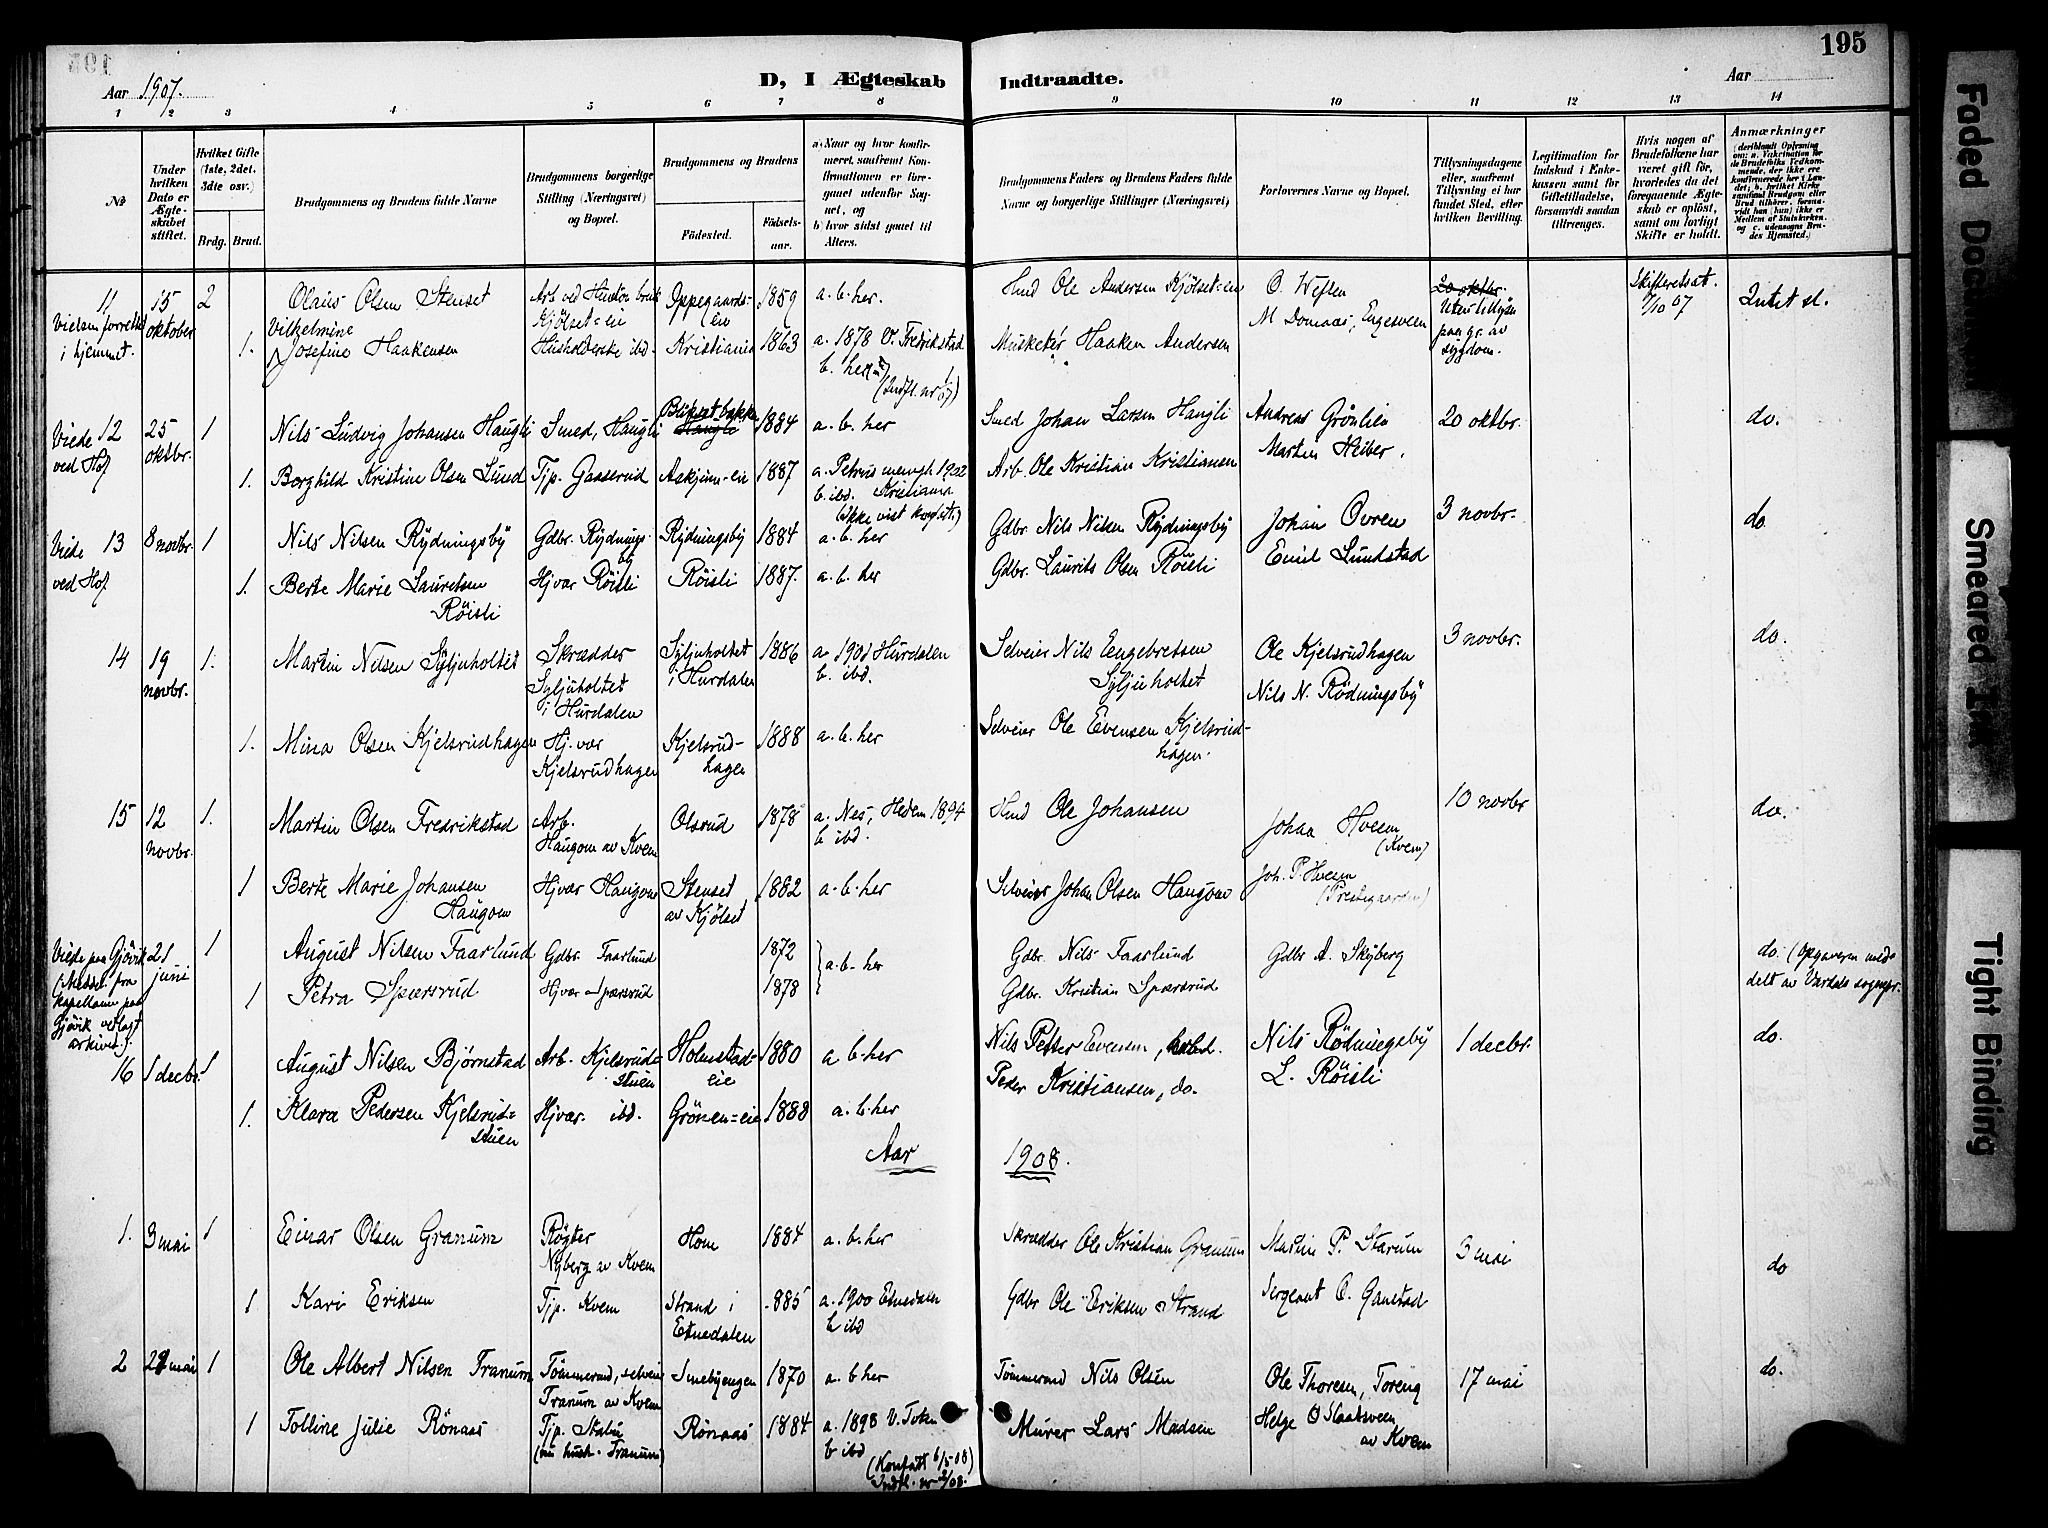 195
Aar 1907.
D, I Ægteskab Indtraadte.
Aar
1 2 3 4 5 6 7 8 9 10 11 12 13 14
No
Under hvilken Dato er Ægteskabet stiftet.
Hvilket Gifte (1ste, 2det, 3die osv.)
Brdg. Brud.
Brudgommens og Brudens fulde Navne
Brudgommens borgerlige Stilling (Næringsvei) og Bopæl.
Brudgommens og Brudens
Fødested. Fødselsaar.
a) Naar og hvor konfirmeret, saafremt Konfirmationen er foregaaet udenfor Sognet, og
b) hvor sidst gaaet til Alters.
Brudgommens Faders og Brudens Faders fulde Navne og borgerlige Stillinger (Næringsvei)
Forlovernes Navne og Bopæl.
Tillysningsdagene eller, saafremt Tillysning ei har fundet Sted, efter hvilken Bevilling.
Legitimation for Indskud i Enkekassen samt for Giftetilladelse, forsaavidt saadan tiltrænges.
Hvis nogen af Brudefolkene har været gift før, hvorledes da det foregaaende Ægteskab er opløst, samt om lovligt Skifte er holdt.
Anmærkninger
11 15 oktober 2 Olaus Olsen Stenset
Kjölset=eie Oppegaards=eie 1859 a. b. her.
Husmd Ole Andersen Kjölset=eie
O. Weflen
20 oktbr. Uten lysn. paa gr. av sygdom.
Skifteretsat. 7/10 07
Intet st.
Vielsen forrettet i hjemmet.
1. Vilhelmine Josefine Haakensen
Husholderske ibd. Kristiania 1863 a. 1878 V. Fredrikstad b. her
Musketér Haaken Andersen
M Domaas, Engesveen
Viede ved Hof 12 25 oktbr. 1 Nils Ludvig Johansen Haugli Smed, Haugli Haugli 1884 a. b. her
Smed Johan Larsen Haugli Andreas Grönlien 20 oktbr. do.
1. Borghild Kristine Olsen Lund Tjp. Gaaserud Askjum-eie 1887 a. Petrus menigh 1902 Kristiania b. ibd.
Arb. Ole Kristian Kristiansen Martin Heiber.
Viede ved Hof 13 8 novbr. 1 Nils Nilsen Rydningsby Gdbr. Rydningsby Rydningsby 1884 a. b. her
Gdbr Nils Nilsen Rydningsby Johan Ovren 3 novbr. do
1. Berte Marie Lauritsen Röisli Hjvær Röisli Röisli 1887. a. b. her
Gdbr. Laurits Olsen Röisli Emil Lundstad
14 19 novbr. 1. Martin Nilsen Syljuholtet Skrædder Syljuholtet i Hurdalen Syljuholtet i Hurdalen 1886 a 1901 Hurdalen b. ibd.
Selveier Nils Engebretsen Syljuholtet Ole Kjelsrudhagen 3 novbr. do.
Nils N. Rödningsby
1. Mina Olsen Kjelsrudhagen Hj. vær Kjelsrudhagen Kjelsrudhagen 1888 a. b. her
Selveier Ole Evensen Kjelsrudhagen.
15 12 novbr. 1. Martin Olsen Fredrikstad Arb. Haugom av Kvem Olsrud 1878 a. Nes, Hedem 1894 b. ibd.
Husmd Ole Johansen Johan Hveem (Kvem) 10 novbr do.
1 Berte Marie Johansen Haugom Hjvær Haugom Stenset av Kjölset 1882 a. b. her
Selveier Johan Olsen Haugom Joh. P. Hveem (Prestegaarden)
Viede paa Gjövik 21 juni 1 August Nilsen Faarlund Gdbr. Faarlund 1872 a. b. her
Gdbr. Nils Faarlund Gdbr A. Skyberg do. (Opgaven meddelt av Vardals sognepr.
(Meddel. fra kapellanen paa Gjövik vedlagt arkivet).
1 Petra Spærsrud Hjvær Spærsrud 1878
Gdbr. Kristian Spærsrud
16 1 decbr. 1 August Nilsen Björnstad Arb. Kjelsrudstuen Holmstad=eie 1880 a b. her
Nils Petter Evensen, arbd. Nils Rödningsby 1 decbr. do.
1. Klara Pedersen Kjelsrudstuen Hjvær. ibd. Grönen=eie 1888 a. b. her
Peder Kristiansen, do. L. Röisli
Aar 1908.
1. 3 mai 1 Einar Olsen Granum Røgter Nyberg av Kvem Hom 1884 a. b. her
Skrædder Ole Kristian Granum Martin P. Starum 3 mai do
1 Kari Eriksen Tjp. Kvem Strand i Etnedalen 1885 a. 1900 Etnedalen b ibd
Gdbr Ole Eriksen Strand Sergeant O. Ganstad
2 mai 1 Ole Albert Nilsen Tranum Tømmermd, selveier Tranum av Kvem Smebyengen 1870 a. b her
Tømmermd Nils Olsen Ole Thoresen, Toreng 17 mai do.
1 Tolline Julie Rönaas Tjp. Stabu (nu hush. Tranum) Rönaas 1884 a. 1898 V. Toten b ibd
(Konfatt 6/5 08)
Murer Lars Madsen Helge O Slaatsveen av Kvem
Faded Document
Smeared Ink
Tight Binding